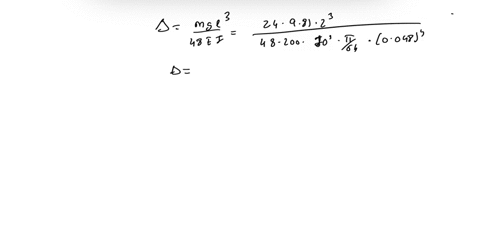 Δ = mgl³/48EI = 24 · 9.81 · 2³ / 48 · 200 · 10³ · π/64 · (0.048)⁴
Δ =